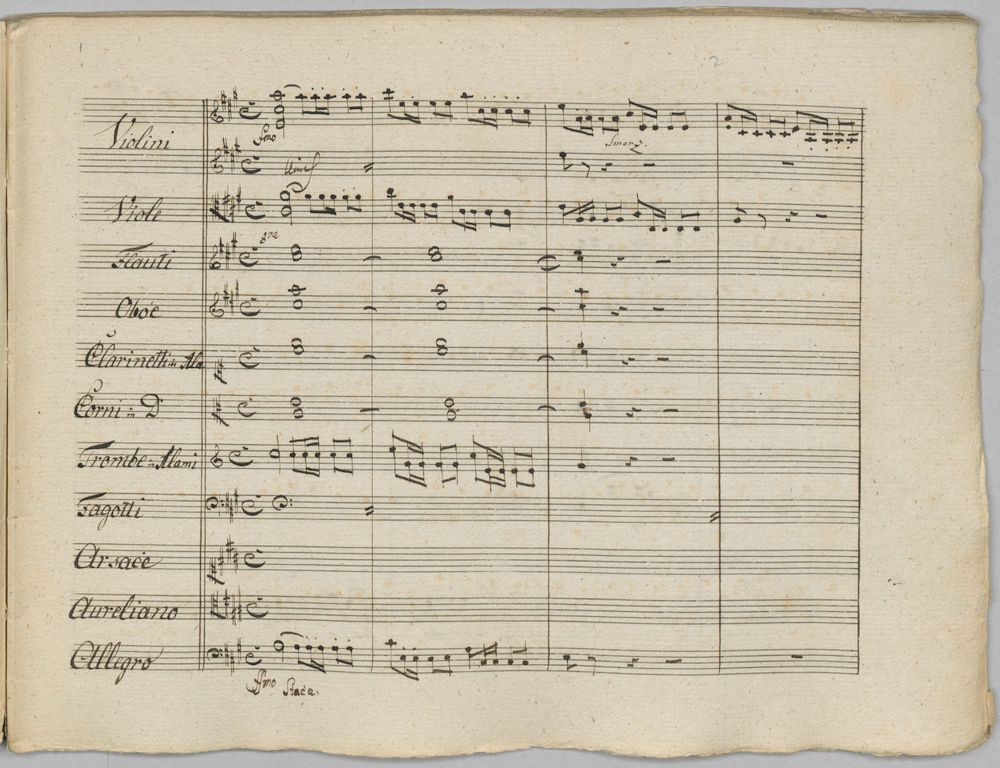 1
2
Violini
Fmo
Smorz.
Unis
Viole
Flauti
8va
Oboe
Clarinetti in Ala
Corni in D
Trombe in Alami
Fagotti
Arsace
Aureliano
Allegro
Fmo Stacc.